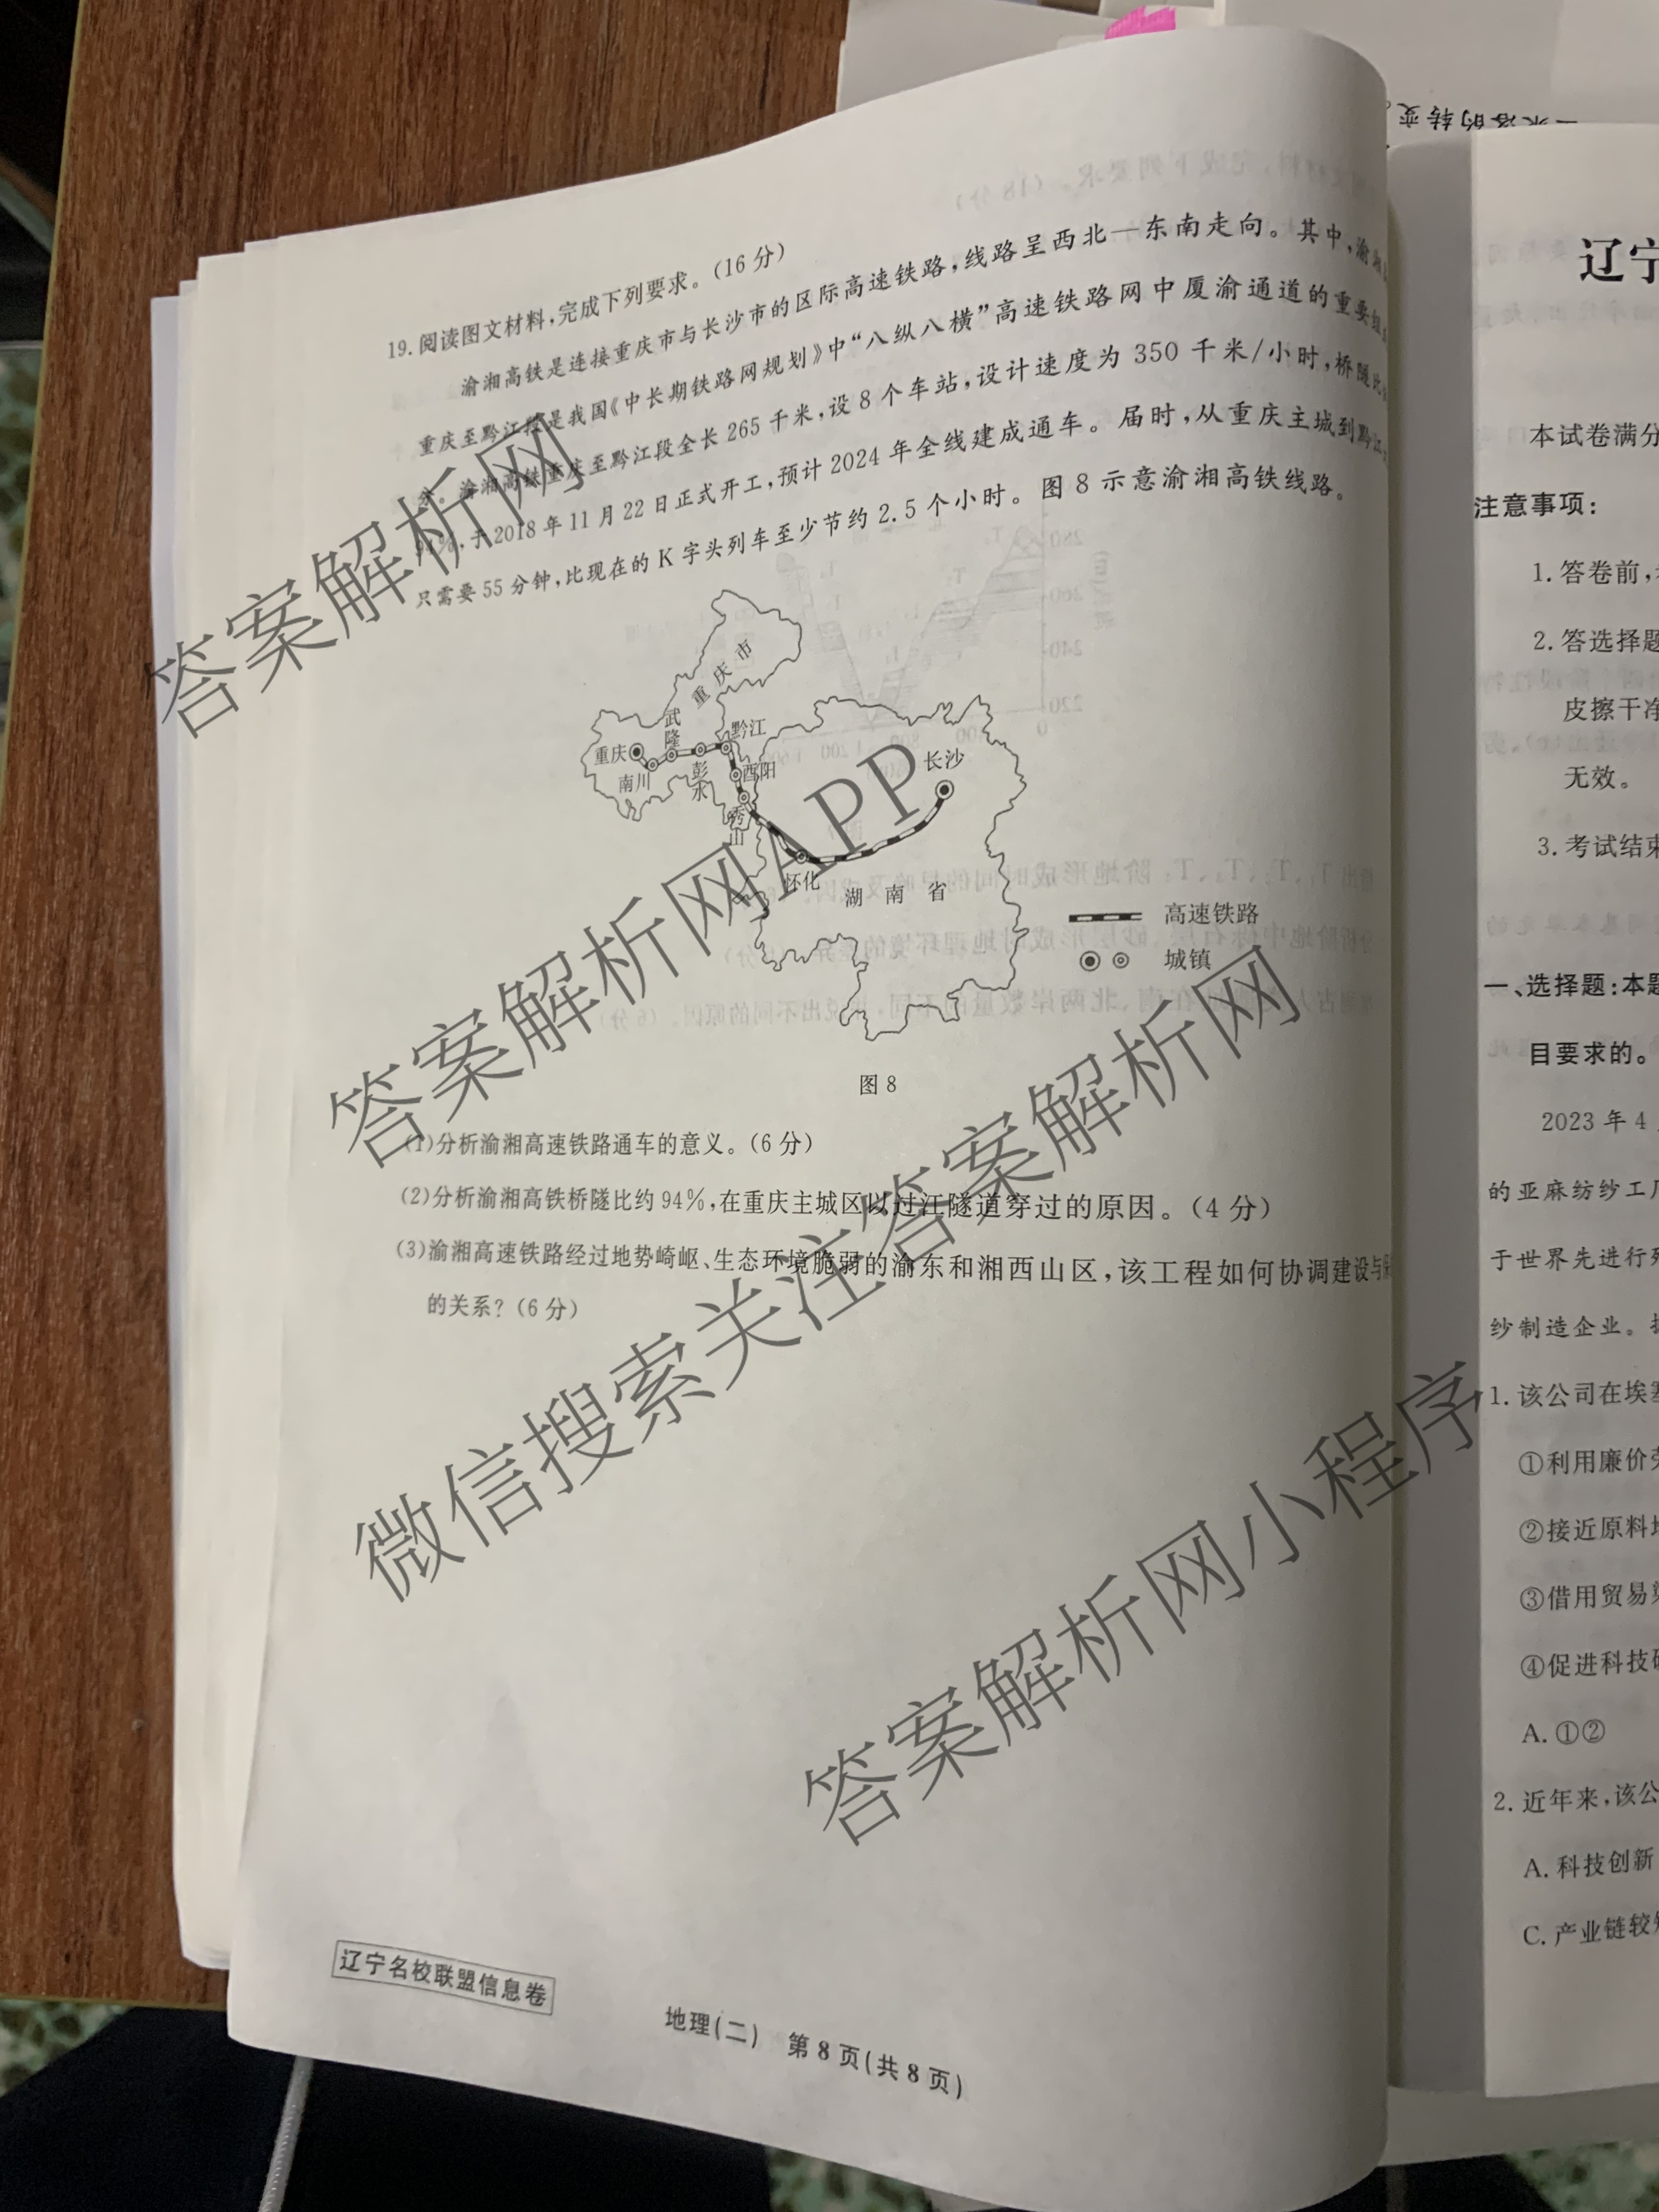 19.阅读图文材料,完成下列要求。(16分)
渝湘高铁是连接重庆市与长沙市的区际高速铁路,线路呈西北—东南走向。其中,渝湘
重庆至黔江段是我国《中长期铁路网规划》中“八纵八横”高速铁路网中厦渝通道的重要组
渝湘高铁重庆至黔江段全长265千米,设8个车站,设计速度为350千米/小时,桥隧比
94%,于2018年11月22日正式开工,预计2024年全线建成通车。届时,从重庆主城到黔江
只需要55分钟,比现在的K字头列车至少节约2.5个小时。图8示意渝湘高铁线路。
重庆市
武隆
黔江
重庆
南川
彭水
酉阳
秀山
长沙
怀化
湖南省
高速铁路
城镇
图8
(1)分析渝湘高速铁路通车的意义。(6分)
(2)分析渝湘高铁桥隧比约94%,在重庆主城区以过江隧道穿过的原因。(4分)
(3)渝湘高速铁路经过地势崎岖、生态环境脆弱的渝东和湘西山区,该工程如何协调建设与
的关系?(6分)
辽宁名校联盟信息卷
地理(二) 第8页(共8页)
答案解析网
答案解析网APP
微信搜索关注答案解析网
答案解析网小程序
的转变
辽宁
本试卷满分
注意事项:
1.答卷前,
2.答选择题
皮擦干净
无效。
3.考试结束
一、选择题:本题
目要求的。
2023年4
的亚麻纺纱工厂
于世界先进行
纱制造企业。
1.该公司在埃塞
①利用廉价
②接近原料
③借用贸易
④促进科技
A.①②
2.近年来,该公
A.科技创新
C.产业链较